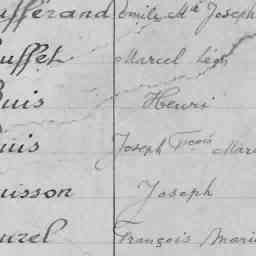 ufférand Emile Mie Joseph
uffet Marcel Léon
uis Henri
uis Joseph Fçois Mari
uisson Joseph
urel François Marie